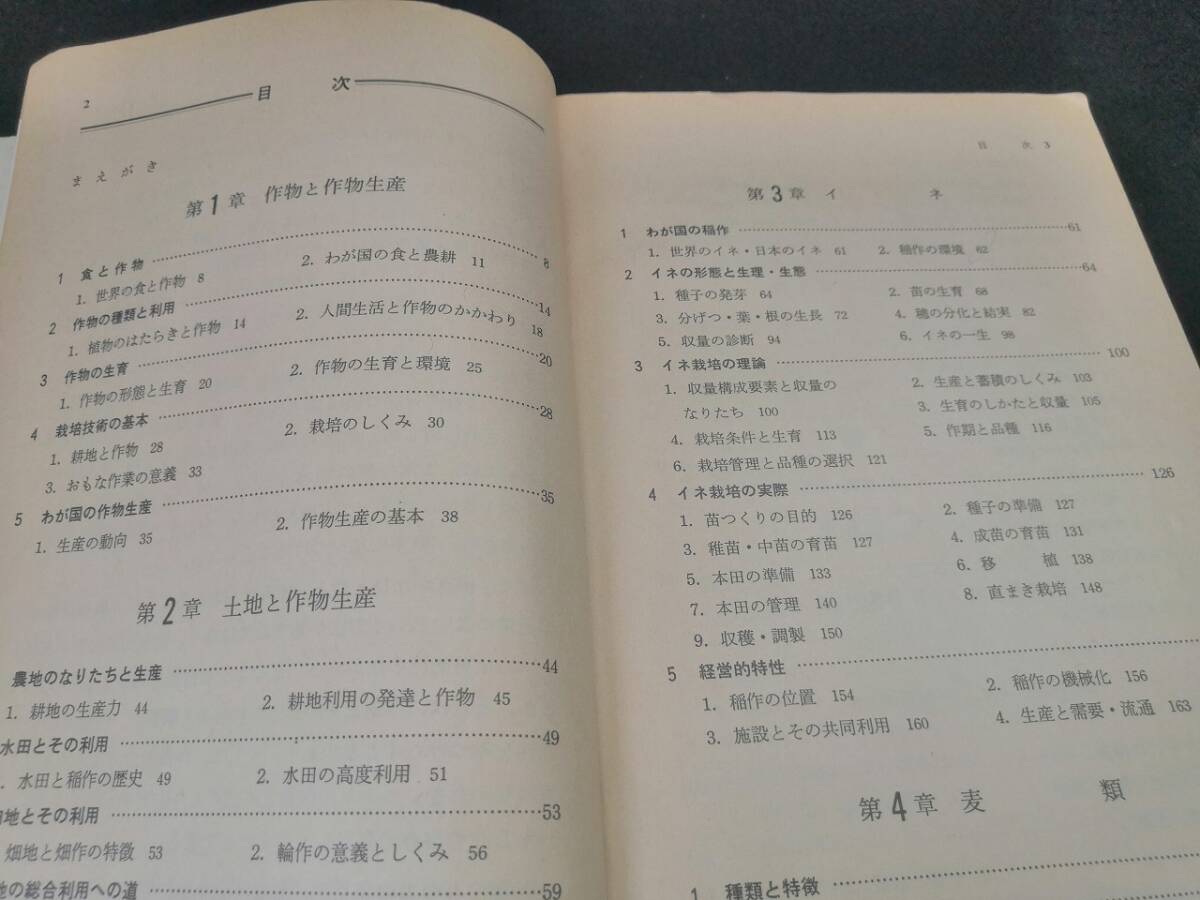 2
目 次
まえがき
第1章 作物と作物生産
1 食と作物 8
1. 世界の食と作物 8 2. わが国の食と農耕 11
2 作物の種類と利用 14
1. 植物のはたらきと作物 14 2. 人間生活と作物のかかわり 18
3 作物の生育 20
1. 作物の形態と生育 20 2. 作物の生育と環境 25
4 栽培技術の基本 28
1. 耕地と作物 28 2. 栽培のしくみ 30
3. おもな作業の意義 33
5 わが国の作物生産 35
1. 生産の動向 35 2. 作物生産の基本 38
第2章 土地と作物生産
農地のなりたちと生産 44
1. 耕地の生産力 44 2. 耕地利用の発達と作物 45
水田とその利用 49
. 水田と稲作の歴史 49 2. 水田の高度利用 51
地とその利用 53
. 畑地と畑作の特徴 53 2. 輪作の意義としくみ 56
の総合利用への道 59
目 次 3
第3章 イ ネ
1 わが国の稲作 61
1. 世界のイネ・日本のイネ 61 2. 稲作の環境 62
2 イネの形態と生理・生態 64
1. 種子の発芽 64 2. 苗の生育 68
3. 分げつ・葉・根の生長 72 4. 穂の分化と結実 82
5. 収量の診断 94 6. イネの一生 98
3 イネ栽培の理論 100
1. 収量構成要素と収量の 2. 生産と蓄積のしくみ 103
なりたち 100 3. 生育のしかたと収量 105
4. 栽培条件と生育 113 5. 作期と品種 116
6. 栽培管理と品種の選択 121
4 イネ栽培の実際 126
1. 苗つくりの目的 126 2. 種子の準備 127
3. 稚苗・中苗の育苗 127 4. 成苗の育苗 131
5. 本田の準備 133 6. 移 植 138
7. 本田の管理 140 8. 直まき栽培 148
9. 収穫・調製 150
5 経営的特性
1. 稲作の位置 154 2. 稲作の機械化 156
3. 施設とその共同利用 160 4. 生産と需要・流通 163
第4章 麦 類
1 種類と特徴